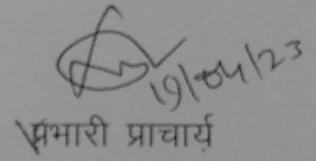 19/04/23
प्रभारी प्राचार्य